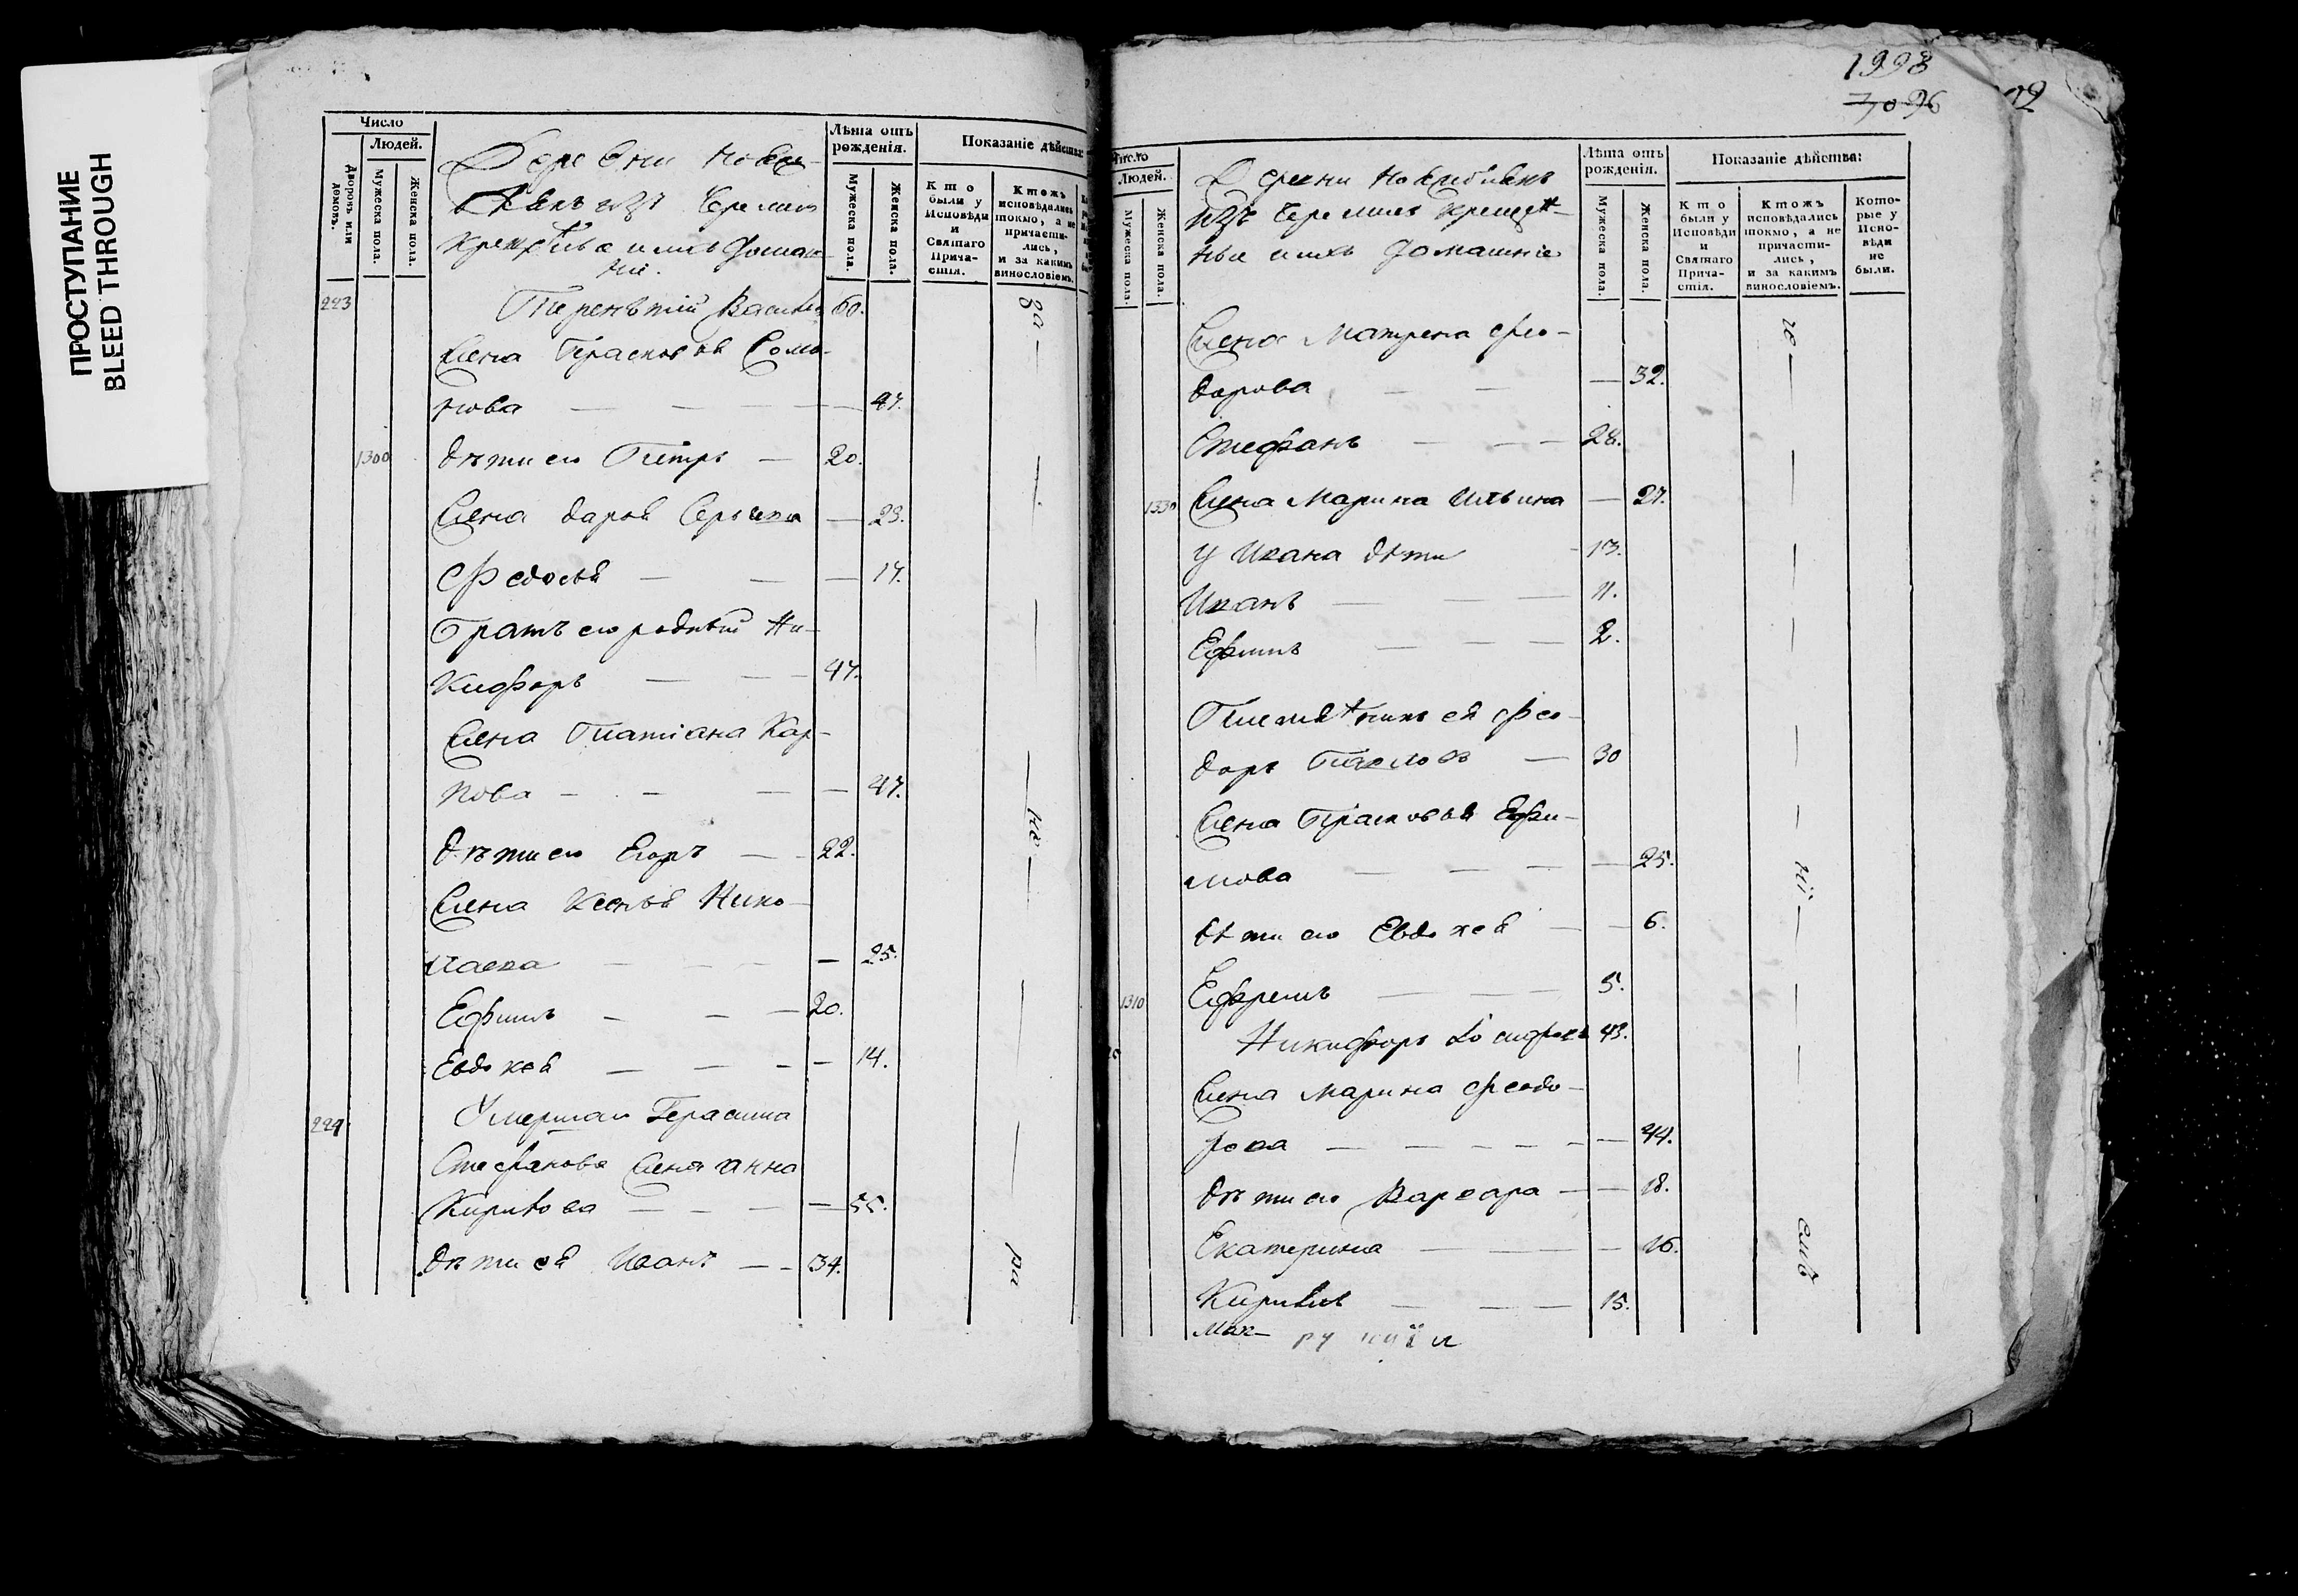 ПРОСТУПАНИЕ
BLEED THROUGH
Число
Людей.
Дворовъ или домовъ.
Мужеска пола.
Женска пола.
Деревни
изъ Черемисъ
домаш-
ніе.
Лѣта отъ рождения.
Мужеска пола.
Женска пола.
Показаніе дѣйства:
Кто были у Исповѣди и Святаго Прича-стія.
Ктожъ исповѣдались токмо, а не причасти-лись, и за какимъ винословіемъ.
223 Терентій Василь 60.
Жена Парасковья Сомо-
нова — 47.
1300 дѣти его Петръ — 20.
Жена Дарья — 23.
Федосья — 17.
Братъ его родный Ни-
кифоръ — 47.
Жена Татіана Кар-
пова — 47.
дѣти его Егоръ — 22.
Жена Ксенья Нико-
лаева — 25.
Ефимъ — 20.
Евдокея — 14.
224 Умершаго Герасима
Стефанова Жена Анна
Кирилова — 55.
дѣти ея Иванъ — 34.
за
не
ра
1998
7096
Число
Людей.
Мужеска пола.
Женска пола.
Деревни
изъ Черемисъ крещен-
ные и ихъ домашніе
Лѣта отъ рожденія.
Мужеска пола.
Женска пола.
Показаніе дѣйства:
Кто были у Исповѣди и Святаго Прича-стія.
Ктожъ исповѣдались токмо, а не причасти-лись, и за какимъ винословіемъ.
Кото-рые у Испо-вѣди не были.
Жена Матрена Фео-
дорова — 32.
Стефанъ — 28.
1330 Жена Марина Ильина — 27.
У Ивана дѣти 13.
Иванъ — 11.
Ефимъ — 2.
Племянникъ ея Фео-
доръ Павловъ — 30
Жена Парасковья Ефи-
мова — 25.
дѣти его Евдокея — 6.
1310 Ефремъ — 5.
Никифоръ 43.
Жена Марина Феодо-
рова — 44.
дѣти его Варвара — 18.
Екатерина — 16.
Кирилъ — 15.
нії
емъ